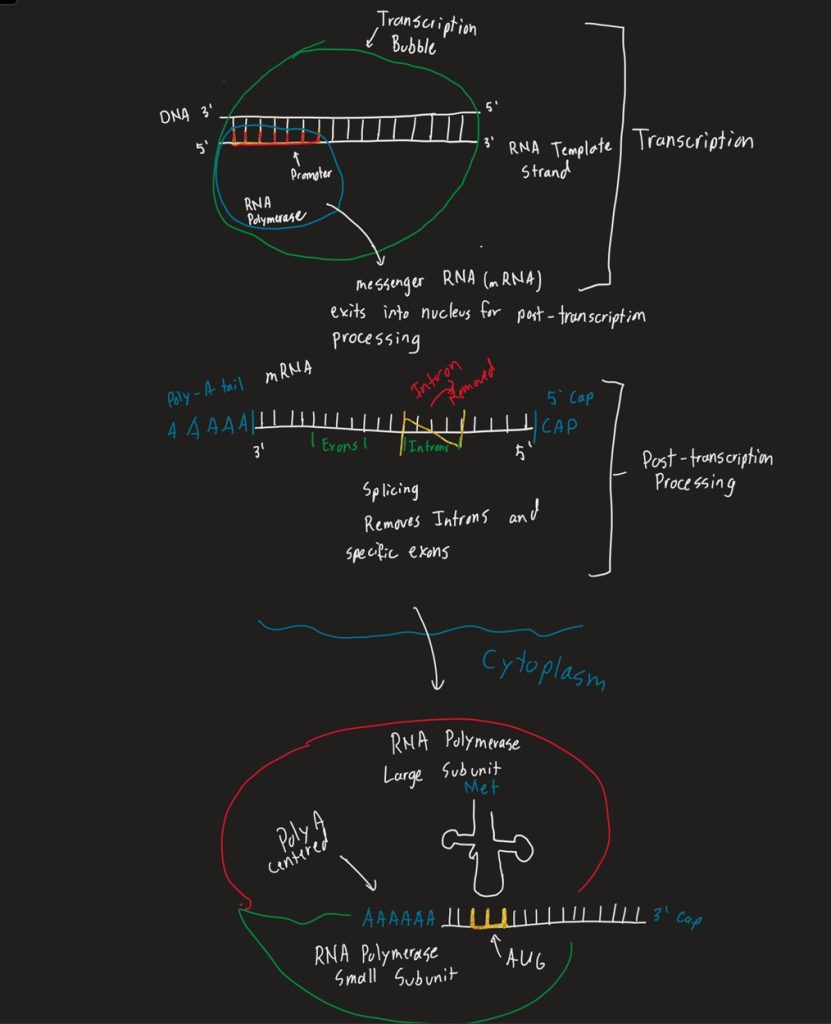 Transcription
Bubble
DNA 3'
5'
5'
3'
RNA Template
Strand
Transcription
Promoter
RNA
Polymerase
messenger RNA (mRNA)
exits into nucleus for post-transcription
processing
Poly-A-tail
mRNA
Intron
Removed
5' Cap
AAAAA
CAP
3'
Exons
Introns
5'
Post-transcription
Processing
Splicing
Removes Introns and
specific exons
Cytoplasm
RNA Polymerase
Large Subunit
Met
Poly A
centered
AAAAAA
3' Cap
AUG
RNA Polymerase
Small Subunit